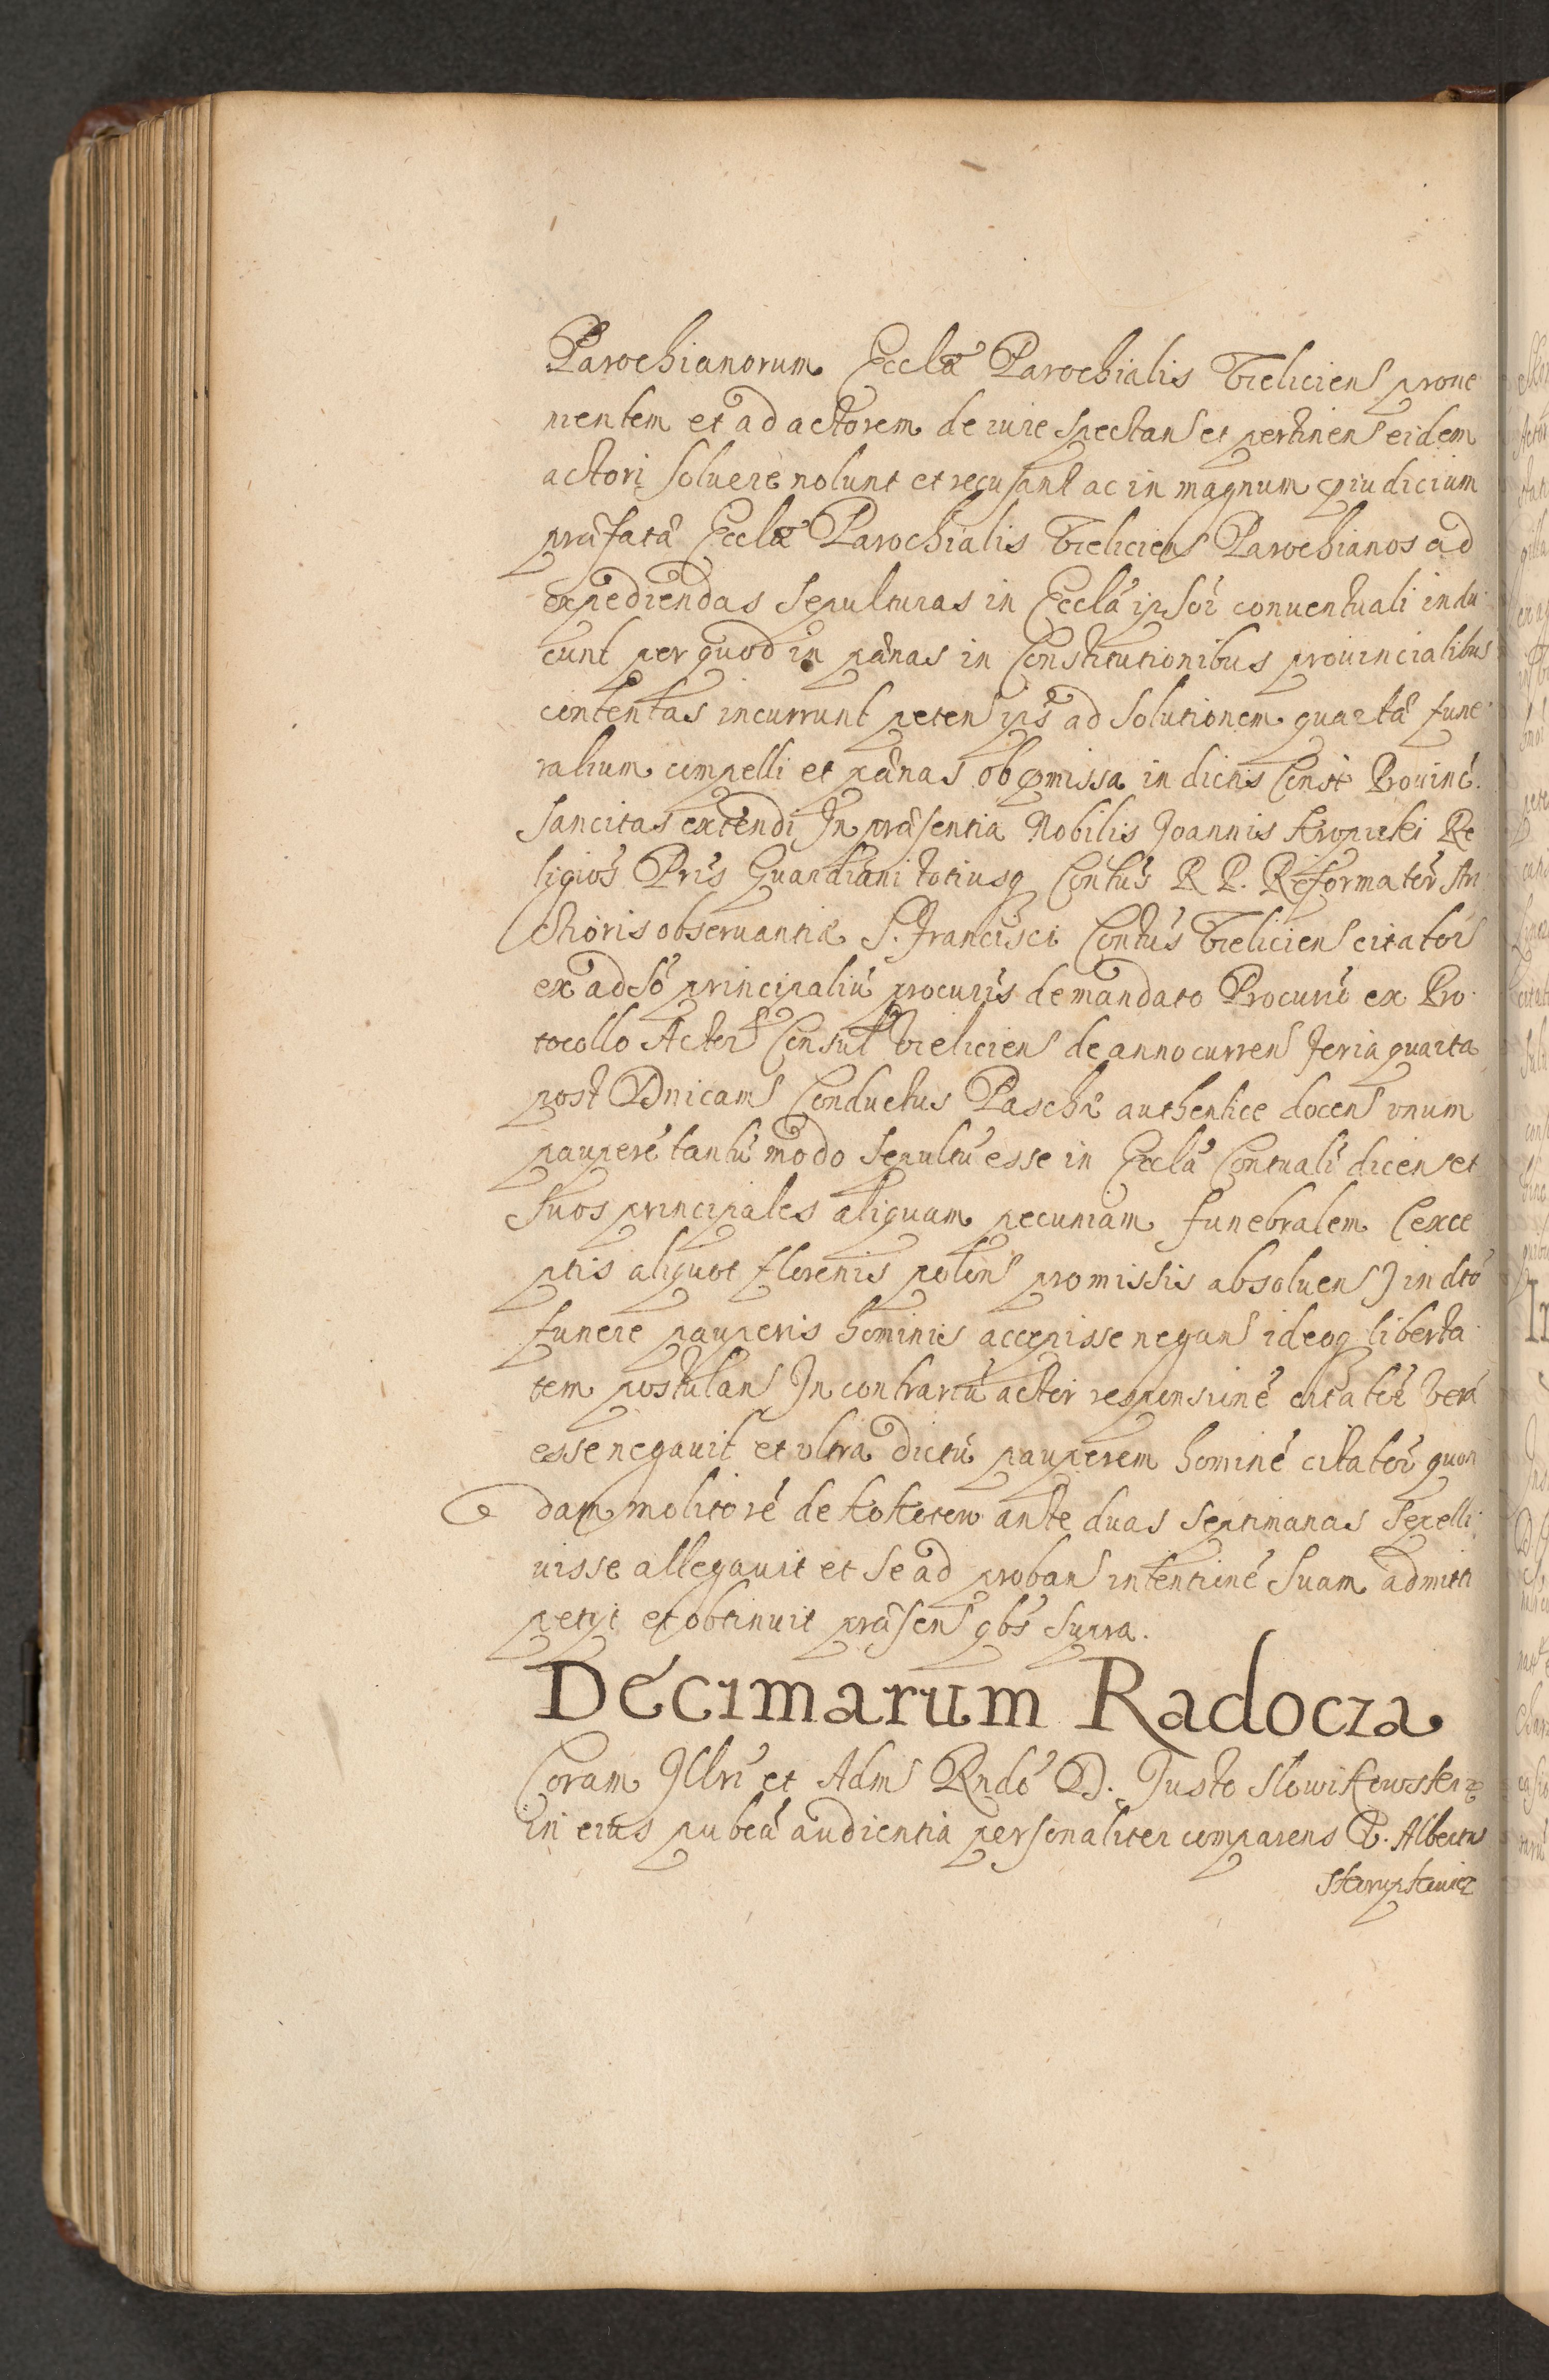 Parochianorum Ecclae Parochialis Vieliciens proue
nientem et ad actorem de iure spectans et pertinens eidem
actori soluere nolunt et recusant ac in magnum piudicium
praefatae Ecclae Parochialis Vieliciens Parochianos ad
expediendas sepulturas in Ecclā ipsor conuentuali indu
cunt per quod in paenas in Constitutionibus prouincialibus
contentas incurrunt petens ips ad solutionem quartae fune
ralium compelli et paenas ob pmissa in dictis Const Prouinc.
sancitas extendi In praesentia Nobilis Joannis Kropicki Re
ligios Pris Guardiani totiusq Contus R P. Reformator Stri
ctioris obseruantiae S. Francisci Contus Vieliciens citator
ex adso principaliū procuris de mandato Procurio ex Pro
tocollo Actor Consul Vieliciens de anno currens feria quarta
post Dnicam Conductus Paschae authentice docens vnum
pauperē tantū modo sepultū esse in Ecclā Contuali dicens et
suos principales aliquam pecuniam funebralem (exce
ptis aliquot florenis polon promissis absoluens) in dto
funere pauperis hominis accepisse negans ideoq liberta
tem postulans In contrariū actor responsionē citator verā
esse negauit et vltra dictū pauperem hominē citator quon
dam molitorē de Kokotow ante duas septimanas sepelli
uisse allegauit et se ad proban intentionē suam admitti
petyt et obtinuit praesen qbs supra.
Decimarum Radocza
Coram Illri et Adm Rndo D. Justo Słowikowski
in eius pubca audientia personaliter comparens D. Albertus